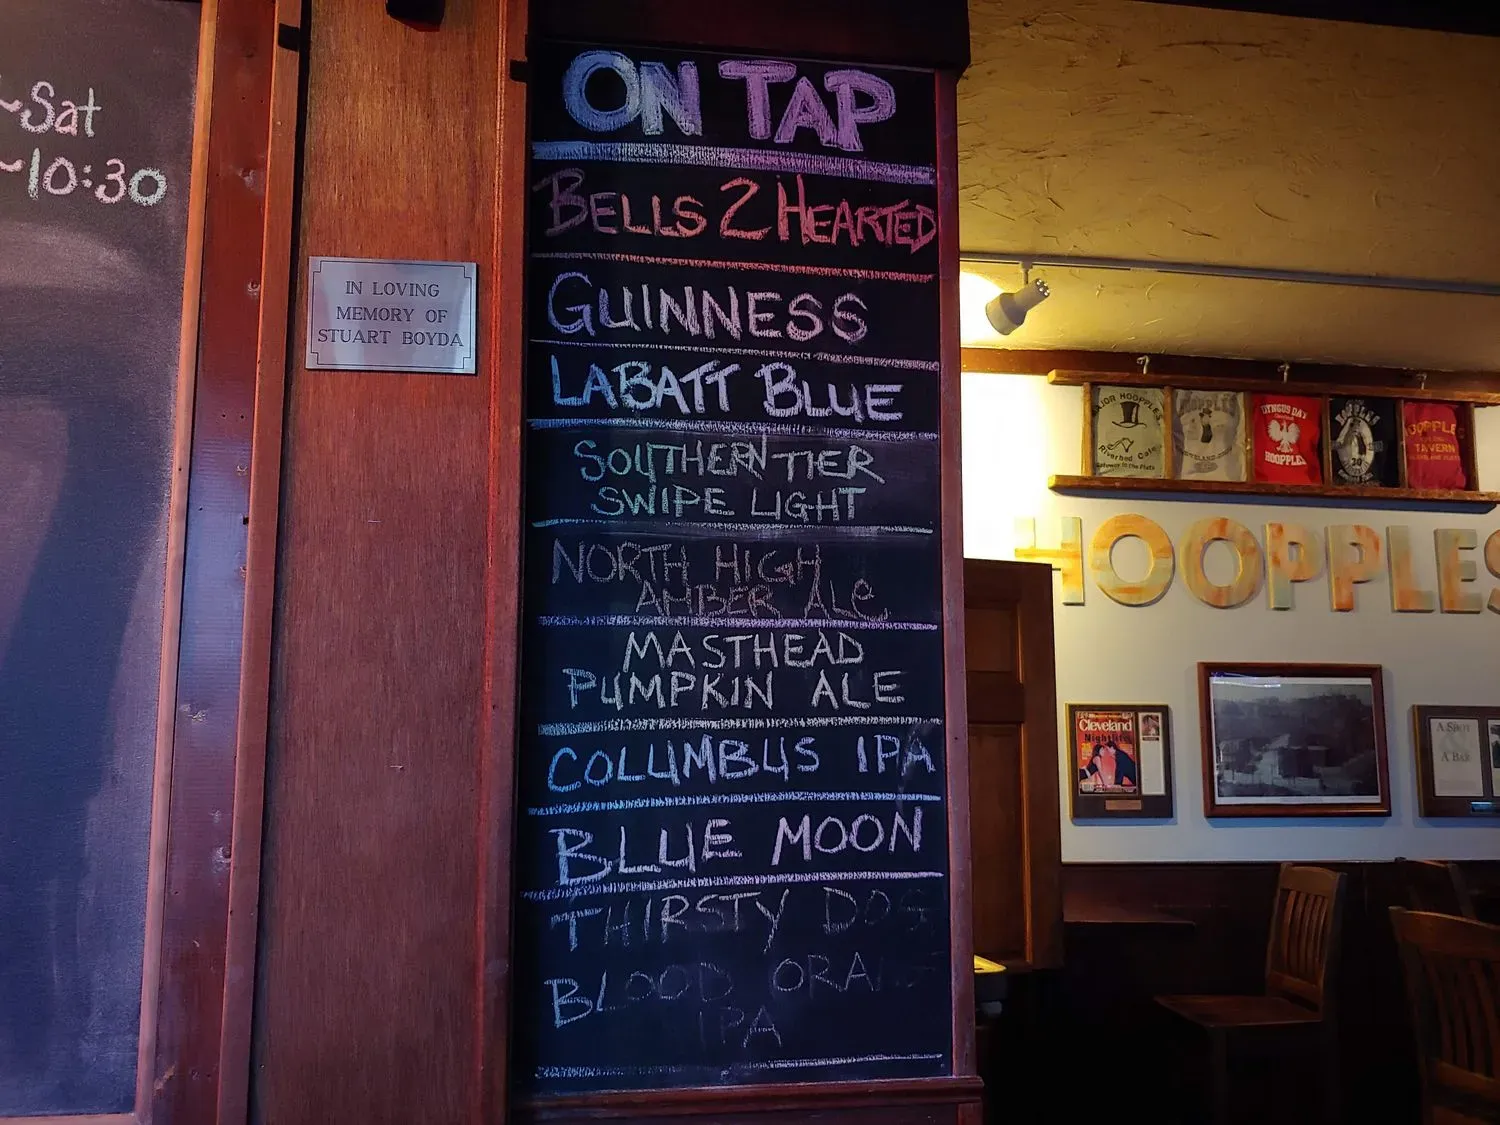 ~Sat
~10:30
IN LOVING
MEMORY OF
STUART BOYDA
ON TAP
BELLS 2 HEARTED
GUINNESS
LABATT BLUE
SOUTHERN TIER
SWIPE LIGHT
NORTH HIGH
AMBER ALe
MASTHEAD
PUMPKIN ALE
COLUMBUS IPA
BLUE MOON
THIRSTY DOG
BLOOD
IPA
MAJOR HOOPPLES
Riverbed Cafe
Gateway to the Flats
HOOPPLES
DYNGUS DAY
HOOPPLES
HOOPPLES
HOOPPLES
TAVERN
HOOPPLES
Cleveland
Nightlife
A SPOT
A BAR